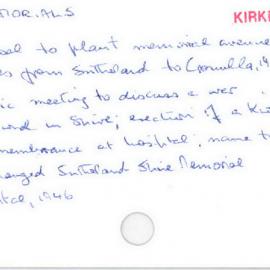 MORIALS
KIRK
to plant memorial avenue
from Sutherland to Cronulla, 19
meeting to discuss a war
in Shire; erection of a Ki
remembrance at hospital; name to
hanged Sutherland Shire Memorial
ital, 1946